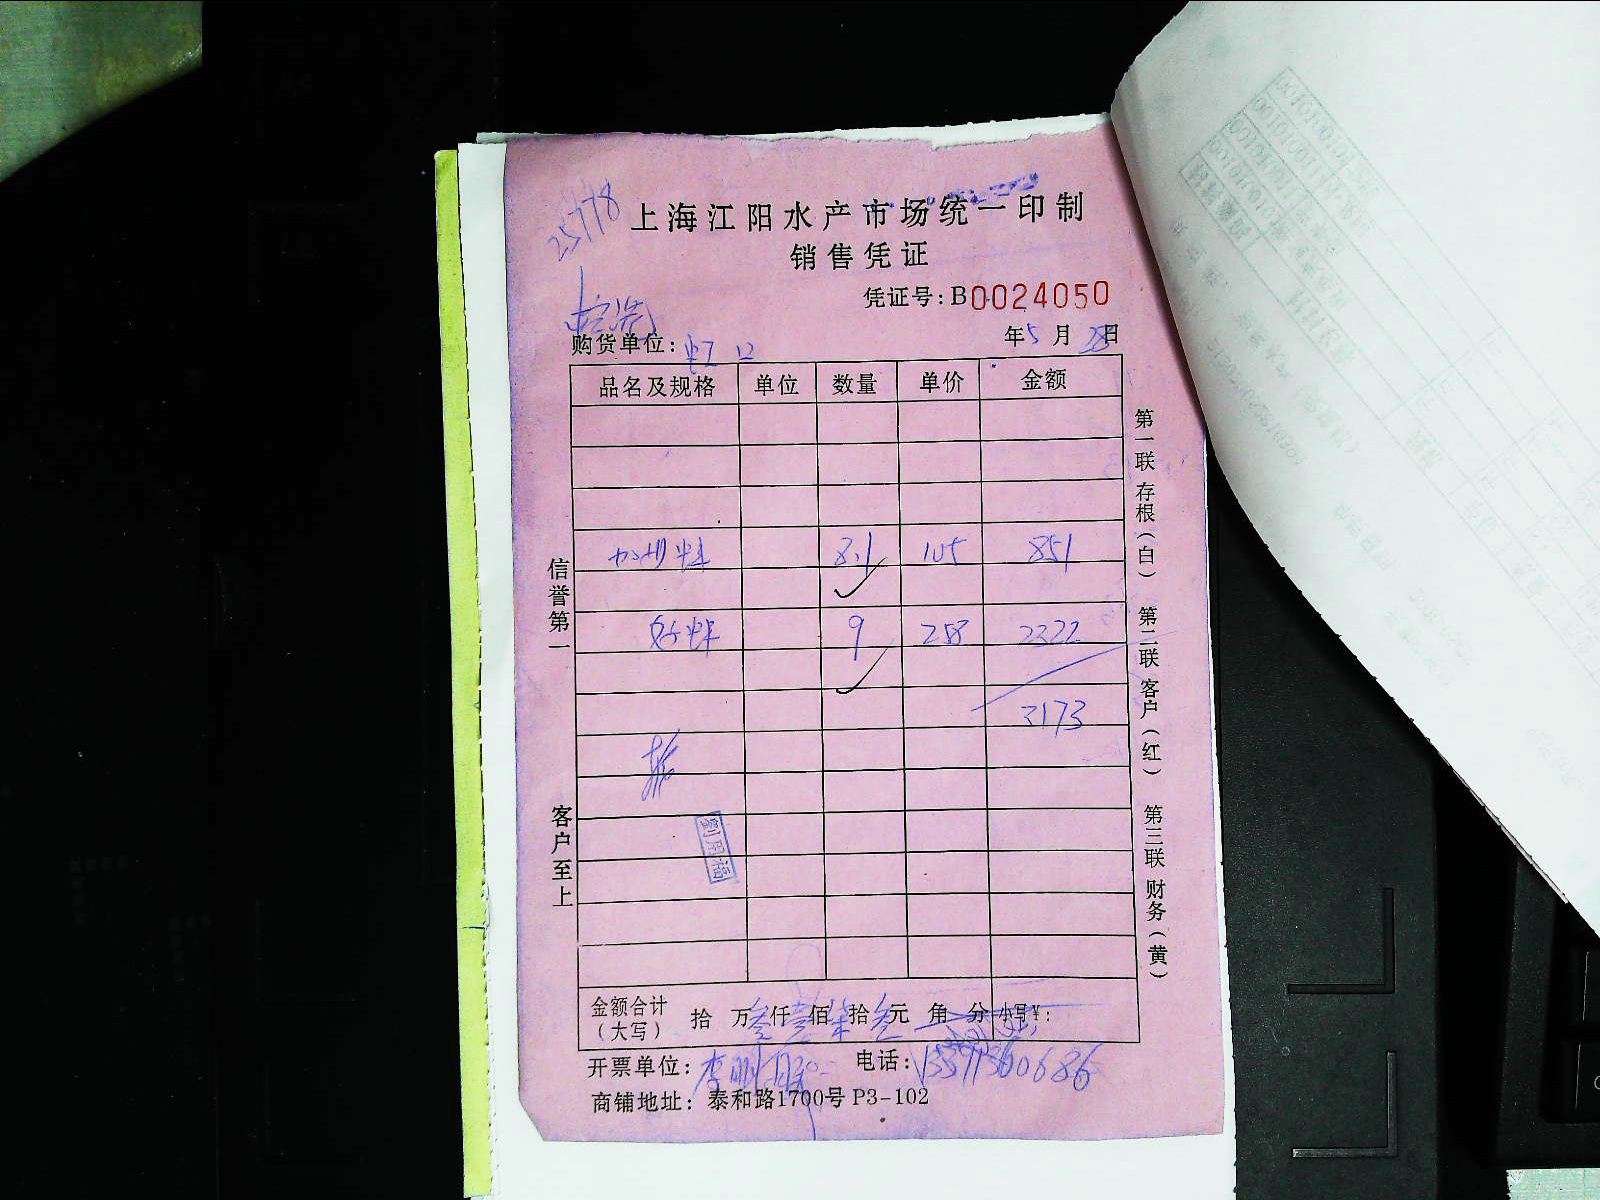 25778
上海江阳水产市场统一印制
销售凭证
凭证号:B0024050
购货单位: 虹口 年5月28日
品名及规格 单位 数量 单价 金额
8.1 105 851
9 258 2322
3173
劉用福
金额合计（大写） 拾万叁仟壹佰柒拾叁元角分 小写¥:
开票单位: 李 电话:
商铺地址: 泰和路1700号P3-102
信誉第一
客户至上
第一联存根(白) 第二联客户(红) 第三联财务(黄)